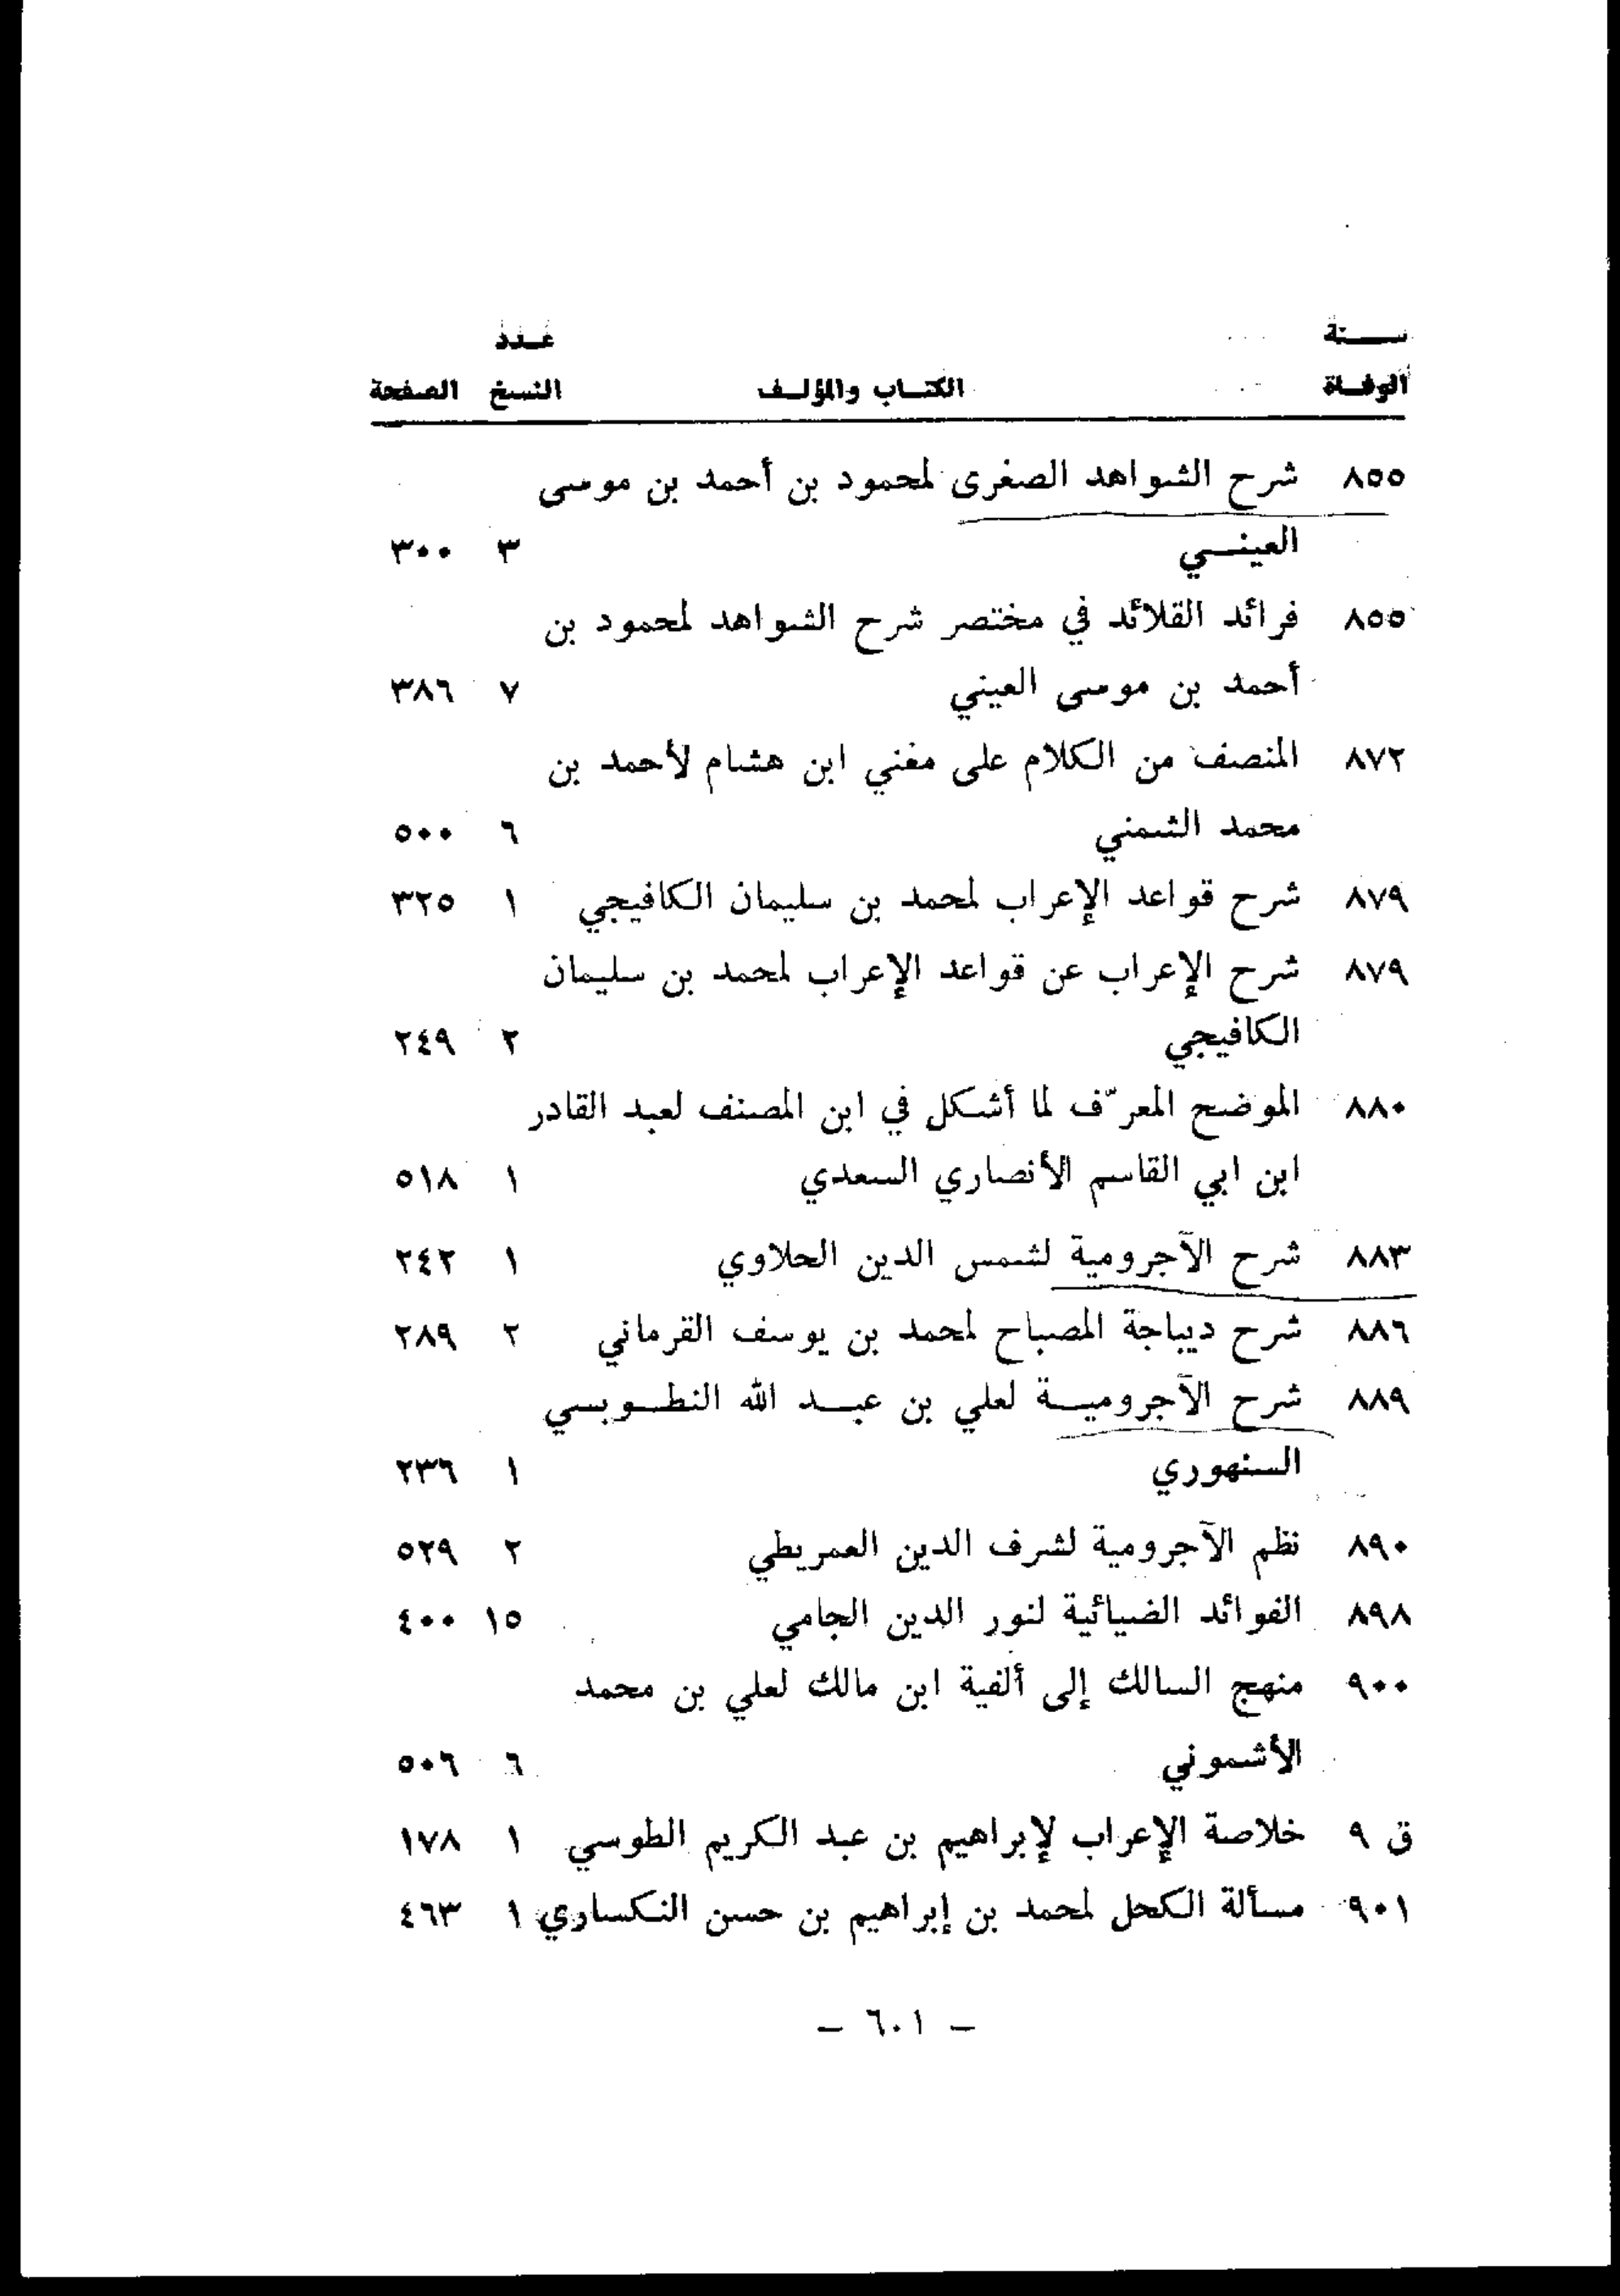 سنة عدد
الوفاة الكتاب والمؤلف النسخ الصفحة
٨٥٥ شرح الشواهد الصغرى لمحمود بن أحمد بن موسى
العيني ٣ ٣٠٠
٨٥٥ فرائد القلائد في مختصر شرح الشواهد لمحمود بن
أحمد بن موسى العيني ٧ ٣٨٦
٨٧٢ المنصف من الكلام على مغني ابن هشام لأحمد بن
محمد الشمني ٦ ٥٠٠
٨٧٩ شرح قواعد الإعراب لمحمد بن سليمان الكافيجي ١ ٣٢٥
٨٧٩ شرح الإعراب عن قواعد الإعراب لمحمد بن سليمان
الكافيجي ٢ ٢٤٩
٨٨٠ الموضح المعرّف لما أشكل في ابن المصنف لعبد القادر
ابن ابي القاسم الأنصاري السعدي ١ ٥١٨
٨٨٣ شرح الآجرومية لشمس الدين الحلاوي ١ ٢٤٢
٨٨٦ شرح ديباجة المصباح لمحمد بن يوسف القرماني ٢ ٢٨٩
٨٨٩ شرح الآجرومية لعلي بن عبد الله النطوبسي
السنهوري ١ ٢٣٦
٨٩٠ نظم الآجرومية لشرف الدين العمريطي ٢ ٥٢٩
٨٩٨ الفوائد الضيائية لنور الدين الجامي ١٥ ٤٠٠
٩٠٠ منهج السالك إلى ألفية ابن مالك لعلي بن محمد
الأشموني ٦ ٥٠٦
ق ٩ خلاصة الإعراب لإبراهيم بن عبد الكريم الطوسي ١ ١٧٨
٩٠١ مسألة الكحل لمحمد بن إبراهيم بن حسن النكساري ١ ٤٦٣
– ٦٠١ –